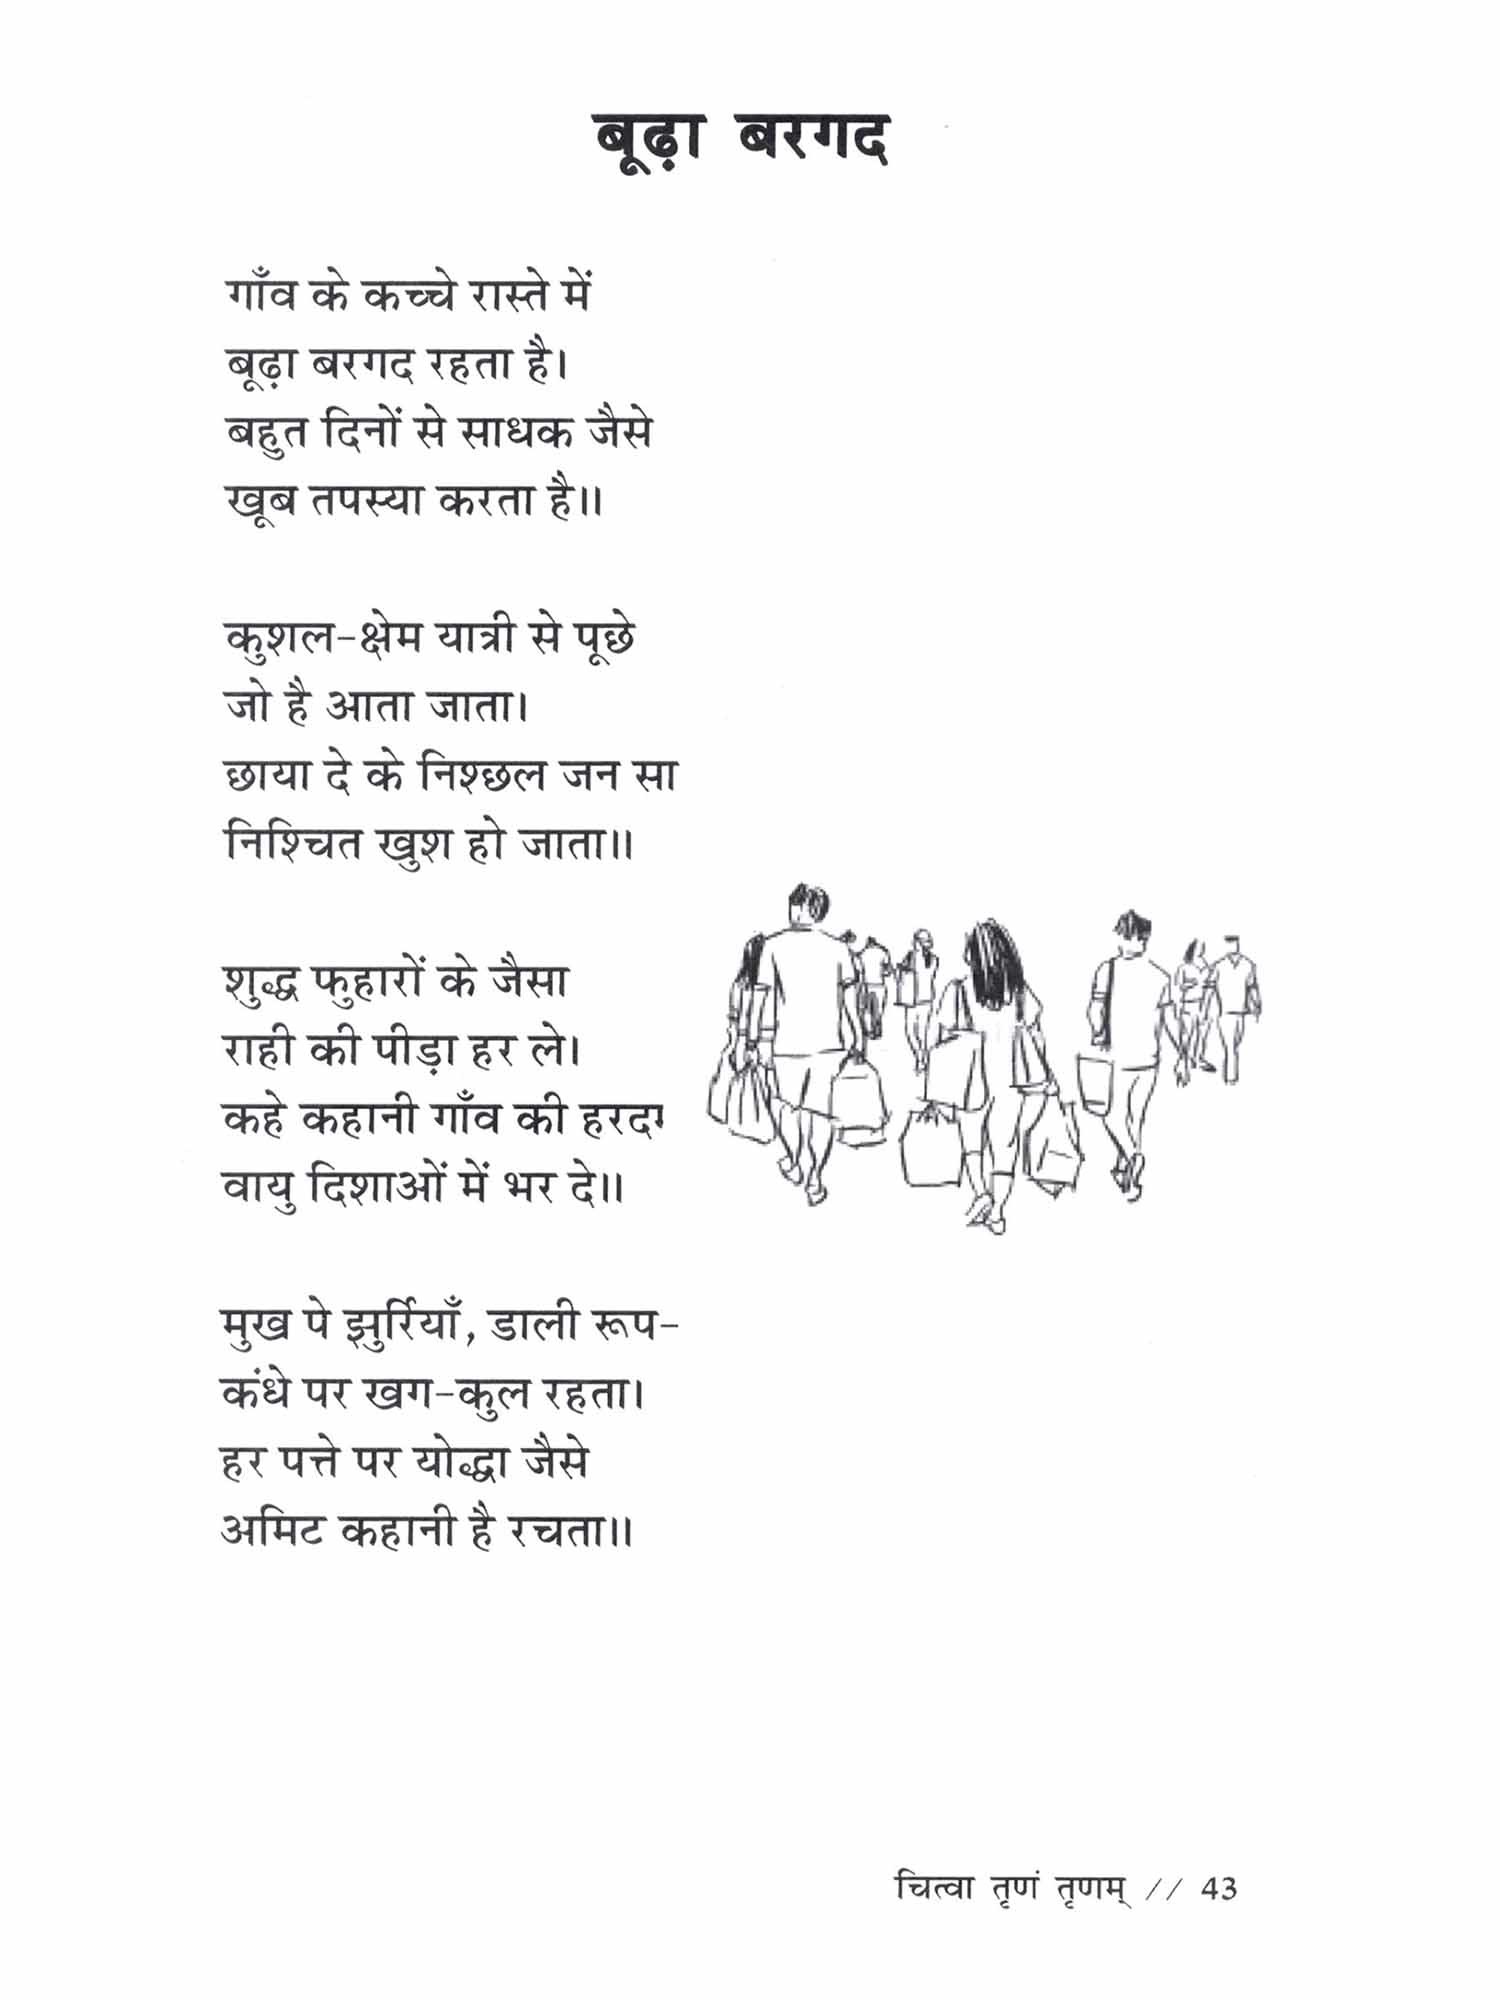 बूढ़ा बरगद
गाँव के कच्चे रास्ते में
बूढ़ा बरगद रहता है।
बहुत दिनों से साधक जैसे
खूब तपस्या करता है॥
कुशल-क्षेम यात्री से पूछे
जो है आता जाता।
छाया दे के निश्छल जन सा
निश्चित खुश हो जाता॥
शुद्ध फुहारों के जैसा
राही की पीड़ा हर ले।
कहे कहानी गाँव की हरदम
वायु दिशाओं में भर दे॥
मुख पे झुर्रियाँ, डाली रूप-
कंधे पर खग-कुल रहता।
हर पत्ते पर योद्धा जैसे
अमिट कहानी है रचता॥
चित्वा तृणं तृणम् // 43